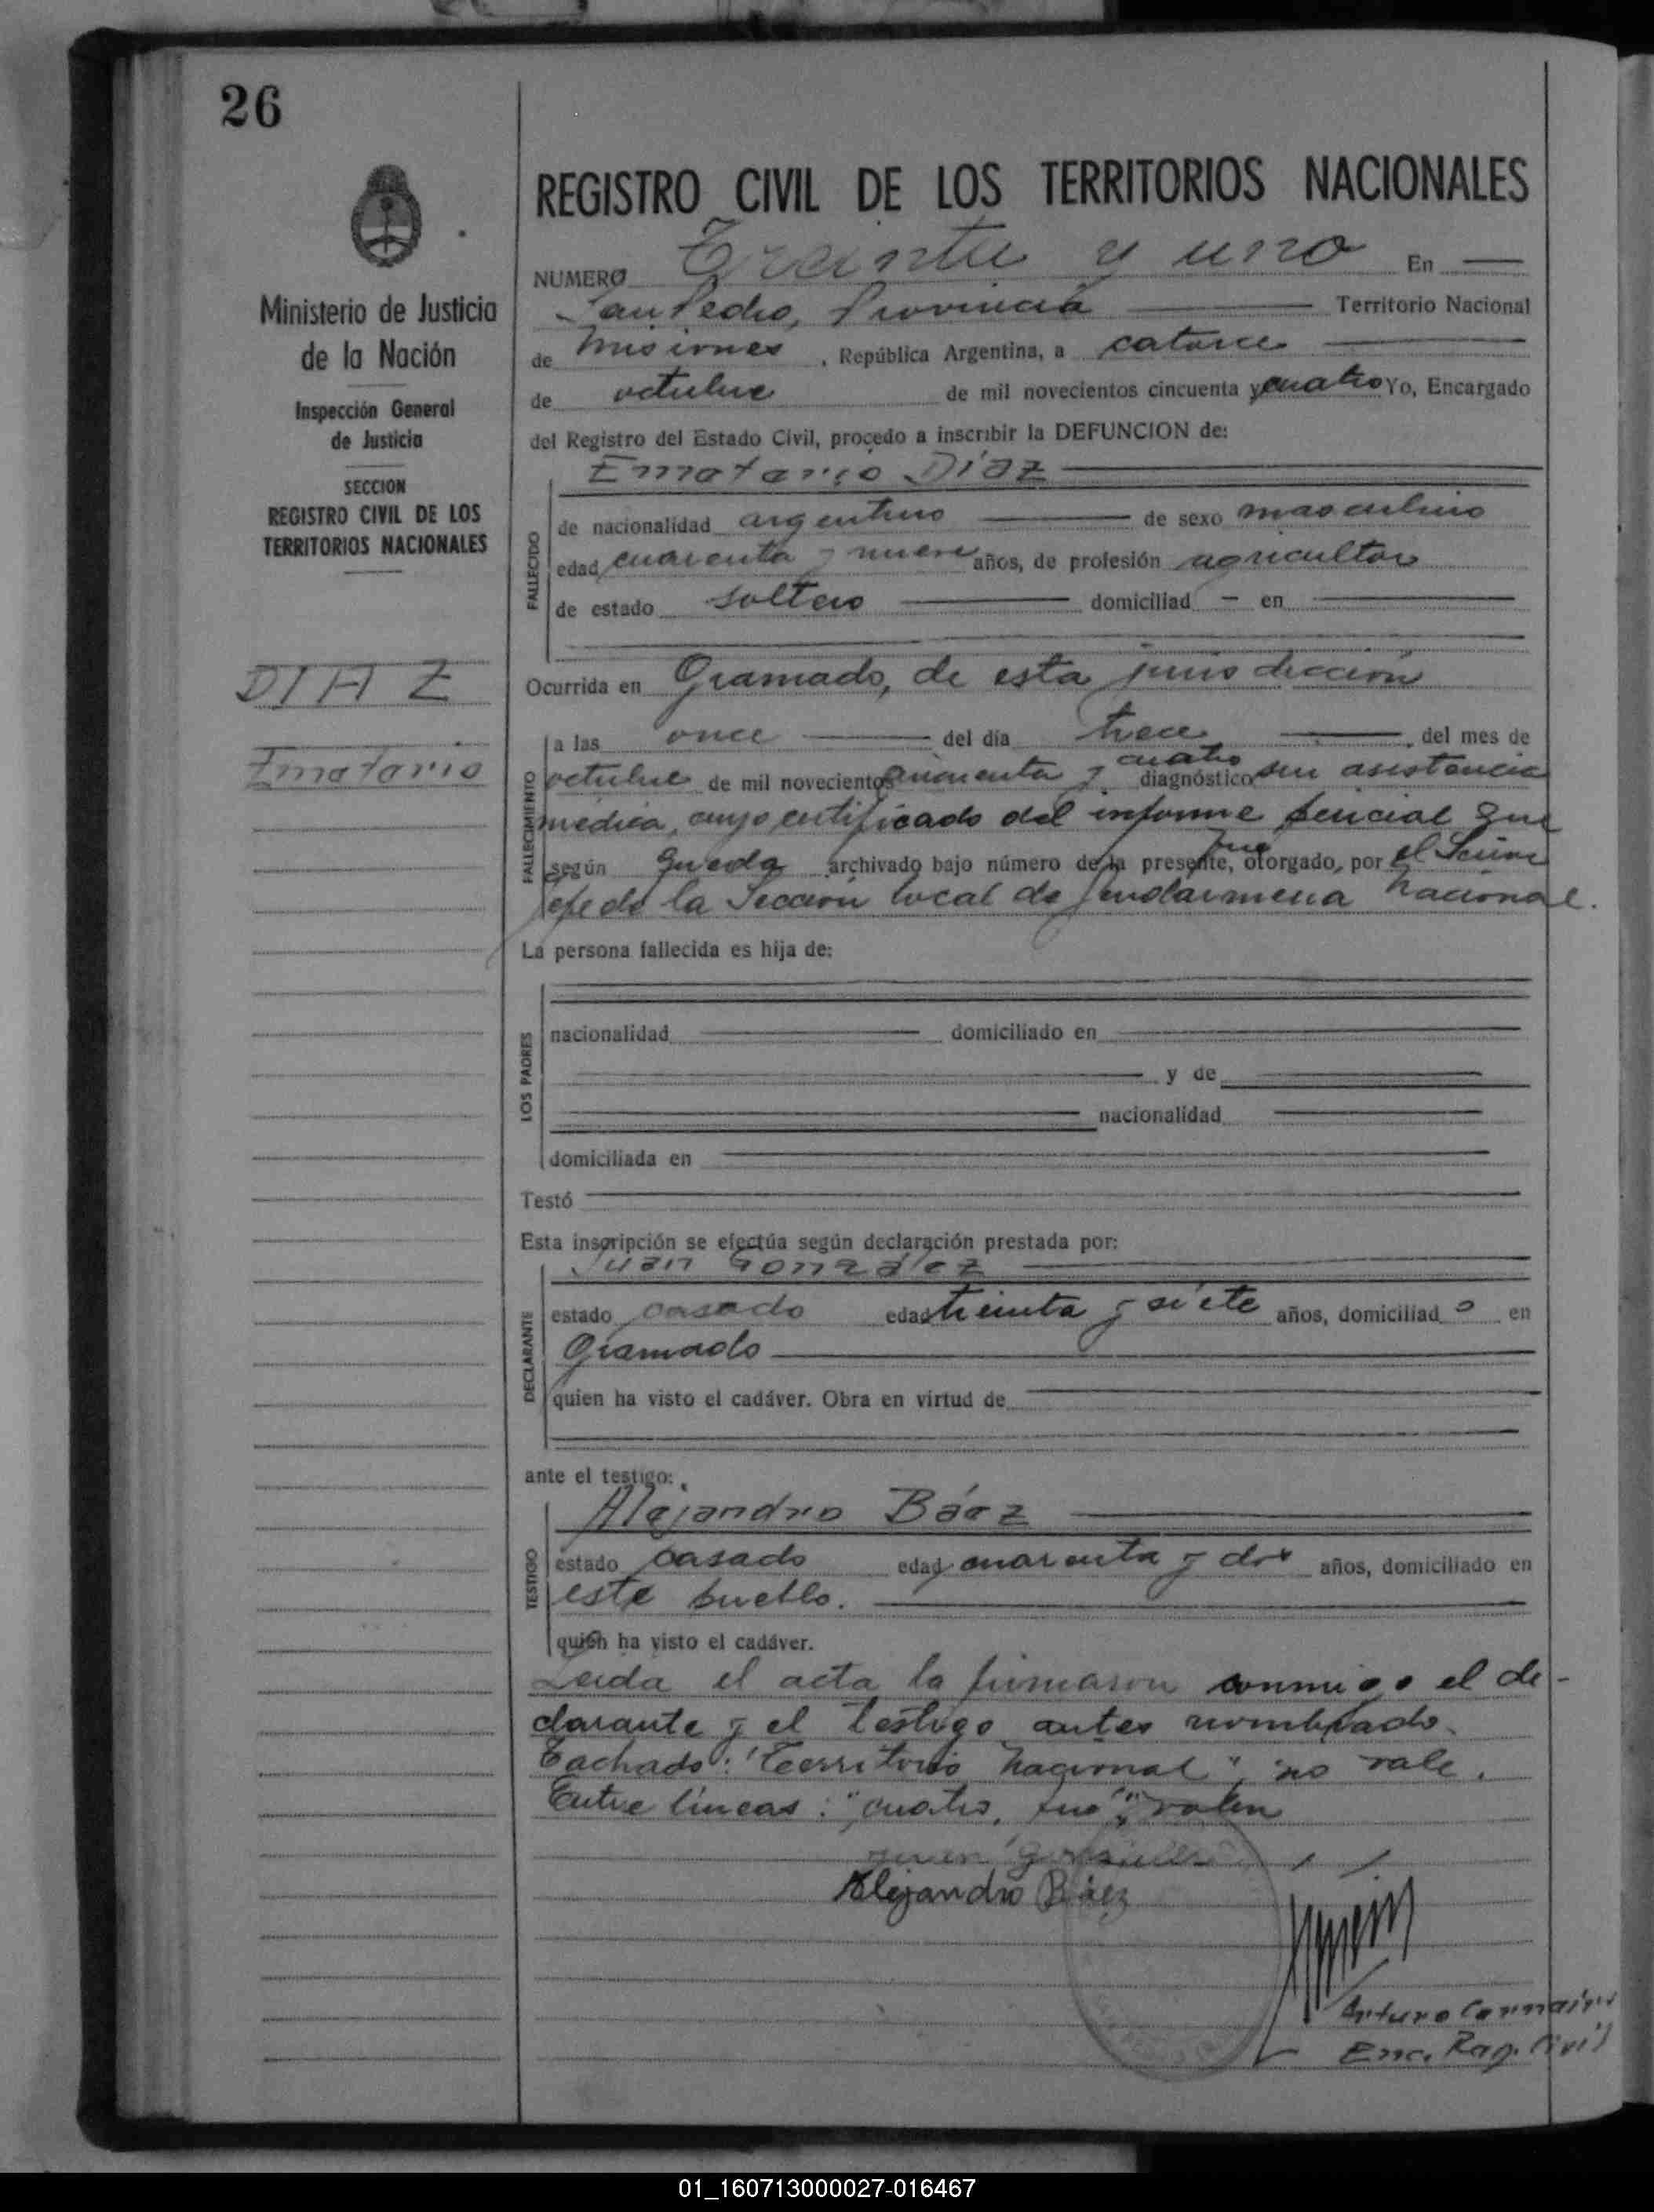 26
Ministerio de Justicia
de la Nación
Inspección General
de Justicia
SECCION
REGISTRO CIVIL DE LOS
TERRITORIOS NACIONALES
DIAZ
Ematario
REGISTRO CIVIL DE LOS TERRITORIOS NACIONALES
NUMERO Treinta y uno En
San Pedro, Provincia Territorio Nacional
de Misiones, República Argentina, a catorce
de octubre de mil novecientos cincuenta y cuatro Yo, Encargado
del Registro del Estado Civil, procedo a inscribir la DEFUNCION de:
Ematario Díaz
FALLECIDO
de nacionalidad argentino de sexo masculino
edad cuarenta y nueve años, de profesión agricultor
de estado soltero domiciliad - en
Ocurrida en Gramado, de esta jurisdicción
FALLECIMIENTO
a las once del día trece del mes de
octubre de mil novecientos cincuenta y cuatro diagnóstico sin asistencia
médica, cuyo certificado del informe pericial que
según queda archivado bajo número de la presente, fue otorgado, por el Señor
Jefe de la Sección local de Gendarmería Nacional.
La persona fallecida es hija de:
LOS PADRES
nacionalidad domiciliado en
y de
nacionalidad
domiciliada en
Testó
Esta inscripción se efectúa según declaración prestada por:
Juan González
DECLARANTE
estado casado edad treinta y siete años, domiciliad o en
Gramado
quien ha visto el cadáver. Obra en virtud de
ante el testigo:
Alejandro Báez
TESTIGO
estado casado edad cuarenta y dos años, domiciliado en
este pueblo.
quien ha visto el cadáver.
Leida el acta la firmaron conmigo el de-
clarante y el testigo antes nombrado.
Tachado: "Territorio Nacional", no vale.
Entre líneas: "cuatro, fue", valen
Alejandro Báez
Arturo
Enc. Reg. Civil
01_160713000027-016467